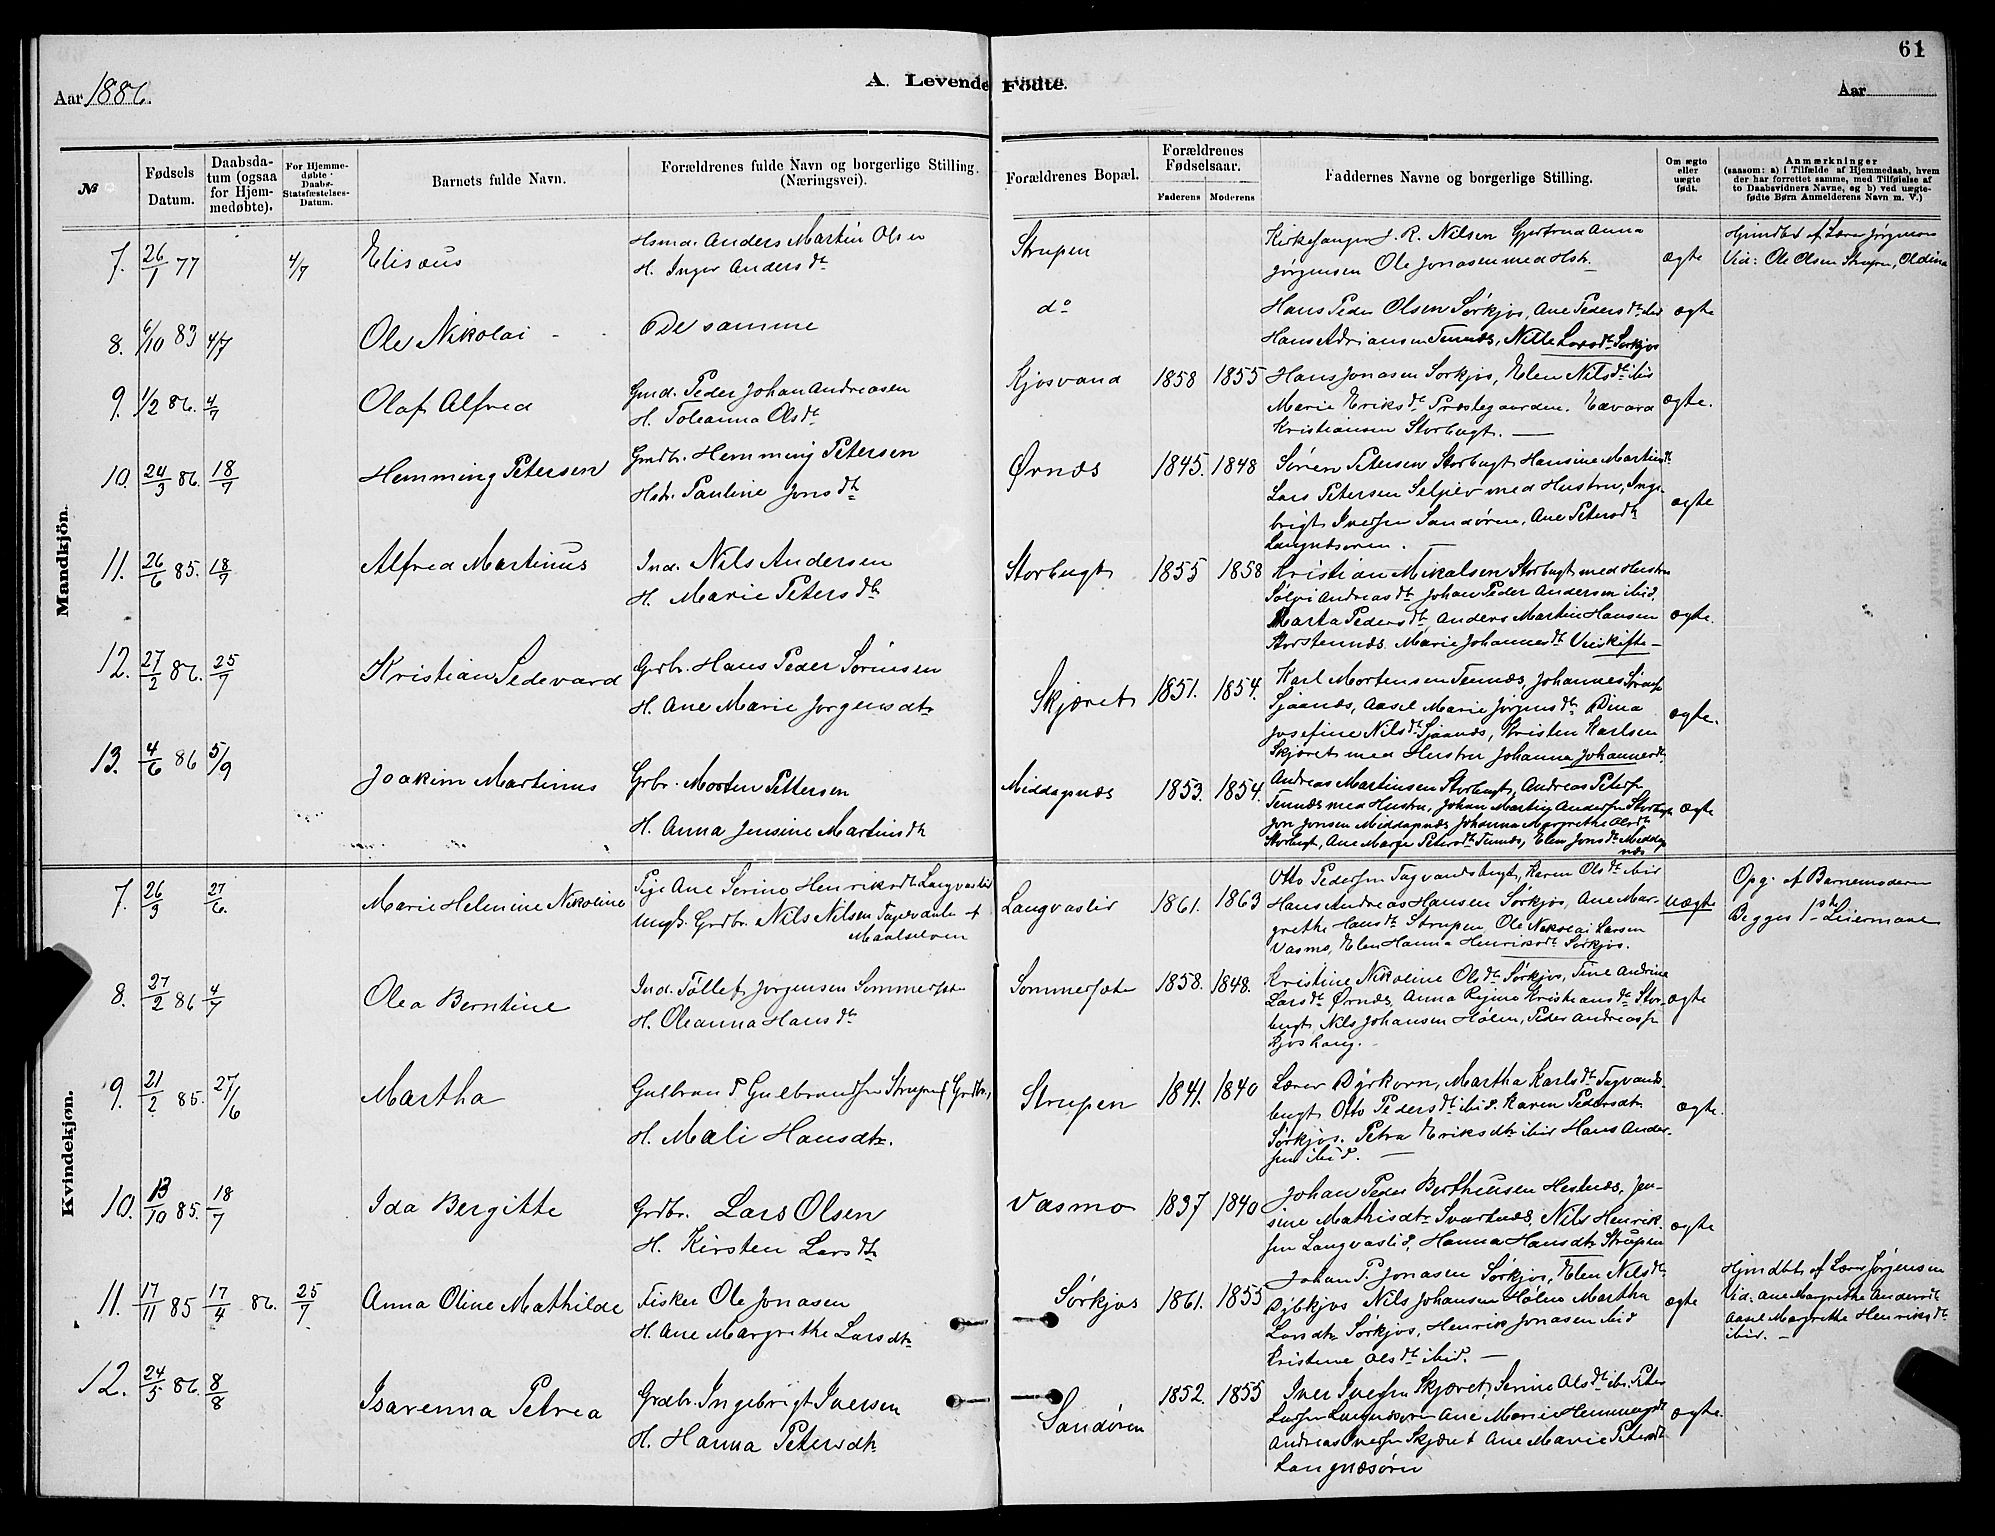 61
Aar 1886.
A. Levende Fødte.
Aar
№
Fødsels Datum.
Daabsdatum (ogsaa for Hjemmedøbte).
For Hjemmedøbte Daabs-Statsfæstelses-Datum.
Barnets fulde Navn.
Forældrenes fulde Navn og borgerlige Stilling. (Næringsvei).
Forældrenes Bopæl.
Forældrenes Fødselsaar.
Faderens
Moderens
Faddernes Navne og borgerlige Stilling.
Om ægte eller uægte født.
Anmærkninger
(saasom: a) i Tilfælde af Hjemmedaab, hvem der har forrettet samme, med Tilføielse af to Daabsvidners Navne, og b) ved uægtefødte Børn Anmelderens Navn m. V.)
Mandkjön.
7. 26/1 77 4/7 Elisæus
Hsmd. Anders Martin Olsen
H. Inger Andersdt
Strupen
Kirkesanger J. R. Nilsen Gjertrud Anna
Jørgensen Ole Jonasen med Hstr.
ægte
Hjmdbt af Lærer Jørgensen
Vid: Ole Olsen Strupen, Oldina
8. 6/10 83 4/7 Ole Nikolai
De samme
do
Hans Peder Olsen Sørkjos, Ane Pedersdt ibid
Hans Adriansen Tennæs, Nille Larsdt Sørkjos
ægte
9. 1/2 86. 4/7 Olaf Alfred
Gmd. Peder Johan Andreasen
H. Toleanna Olsdt
Kjosvand 1858 1855
Hans Jonasen Sørkjos, Elen Nilsdt ibid
Marie Eriksdt Præstegaarden. Edvard
Kristiansen Storbugt.
ægte.
10. 24/3 86. 18/7 Hemming Petersen
Grdbr. Hemming Petersen
Hstr. Pauline Jonsdt
Ørnæs 1845. 1848
Søren Petersen Storbugt Hansine Martinsdt
Lars Petersen Selnev med Hustru, Inge-
brigt Iversen Sandøren, Ane Petersdt
Langnæsøren.
ægte
11. 26/6 85. 18/7 Alfred Martinus
Ind. Nils Andersen
H. Marie Petersdt
Storbugt 1855 1858
Kristian Mikalsen Storbugt med Hustru
Sølvi Andreasdt Johan Peder Andersen ibid.
Marta Pedersdt, Anders Martin Hansen
Storstennæs. Marie Johannesdt Veiskifte
ægte.
12. 27/2 86. 25/7 Kristian Sedevard
Grdbr. Hans Peder Sørensen
H. Ane Marie Jørgensdt
Skjæret 1851. 1854.
Karl Mortensen Tennæs, Johannes Sørensen
Sjaanæs, Aasel Marie Jørgensdt Dina
Josefine Nilsdt Sjaanæs, Kristen Karlsen
Skjæret med Hustru Johanna Johannesdt.
ægte.
13. 4/6 86 5/9 Joakim Martinus
Grbr. Morten Pettersen
H. Anna Jensine Martinsdt
Middagsnæs 1853. 1854.
Andreas Martinsen Storbugt, Andreas Peters.
Tennæs med Hustru, Johan Martin Andersen Storbugt
Jon Jonsen Middagsnæs Johanna Margrethe Olsdt
Storbugt, Ane Margr. Petersdt Tennæs, Elen Jonsdt Middags
næs
ægte
Kvindekjøn.
7. 26/3 27/6. Marie Helenine Nikoline
Pige Ane Serine Henriksdt Langvaslid
Ungk. Grdbr. Nils Nilsen
Maalselven
Langvaslid 1861. 1863
Otto Pedersen Tagvandsbugt, Karen Olsdt ibid
Hans Andreas Hansen Sørkjos, Ane Mar-
grethe Hansdt Strupen, Ole Nikolai Larsen
Vasmo, Elen Hanna Henriksdt Sørkjos.
uægte
Opg. af Barnemoderen
Begges 1ste Leiermaal
8. 27/2 86 4/7 Olea Berntine
Ind. Tollef Jørgensen Sommersæte
H. Oleanna Hansdt
Sommersæte 1858. 1848.
Kristine Nikoline Olsdt Sørkjos, Tine Andrine
Larsdt Ørnæs, Anna Regine Kristiansdt Stor-
bugt, Nils Johansen Holm, Peder Andreassen
Kjoshaug.
ægte
9. 21/2 85. 27/6 Martha
Gulbran P Gulbrandsen Strupen (Grdbr.)
H. Mali Hansdtr.
Strupen 1841. 1840
Lærer Dyrkorn, Martha Karlsdt Tagvands-
bugt Otto Pedersdt ibid. Karen Pedersdtr
Sørkjos. Petra Eriksdtr ibid Hans Ander-
sen ibid.
ægte.
10. 13/10 85. 18/7 Ida Bergitte
Grdbr. Lars Olsen
H. Kirsten Larsdt
Vasmo 1837 1840
Johan Peder Bertheusen Hestnæs, Jen-
sine Mathisdtr Svartnæs, Nils Henrik-
sen Langvaslid, Hanna Hansdtr Strupen
ægte
11. 17/11 85 17/4 86. 25/7 Anna Oline Mathilde
Fisker Ole Jonasen
H. Ane Margrethe Larsdtr
Sørkjos 1861. 1855
Johan P. Jonasen Sørkjos, Elen Nilsdt
Dybkjos Nils Johansen Holm Martha
Larsdtr Sørkjos, Henrik Jonasen ibid
Kristine Olsdt ibid.
ægte
Hjmdbt af Lærer Jørgensen
Vid: Ane Margrethe Andersdt
Aasel Margrethe Henriksdt
ibid.
12. 24/5 86. 8/8 Isarenna Petrea
Grdbr. Ingebrigt Iversen
H. Hanna Petersdtr
Sandøren 1852. 1855
Iver Iversen Skjæret, Serine Olsdt ib. Peter
Larsen Langnæsøren Ane Marie Hemmingsdt
Andreas Iversen Skjæret Ane Marie Petersdt
Langnæsørn
ægte.